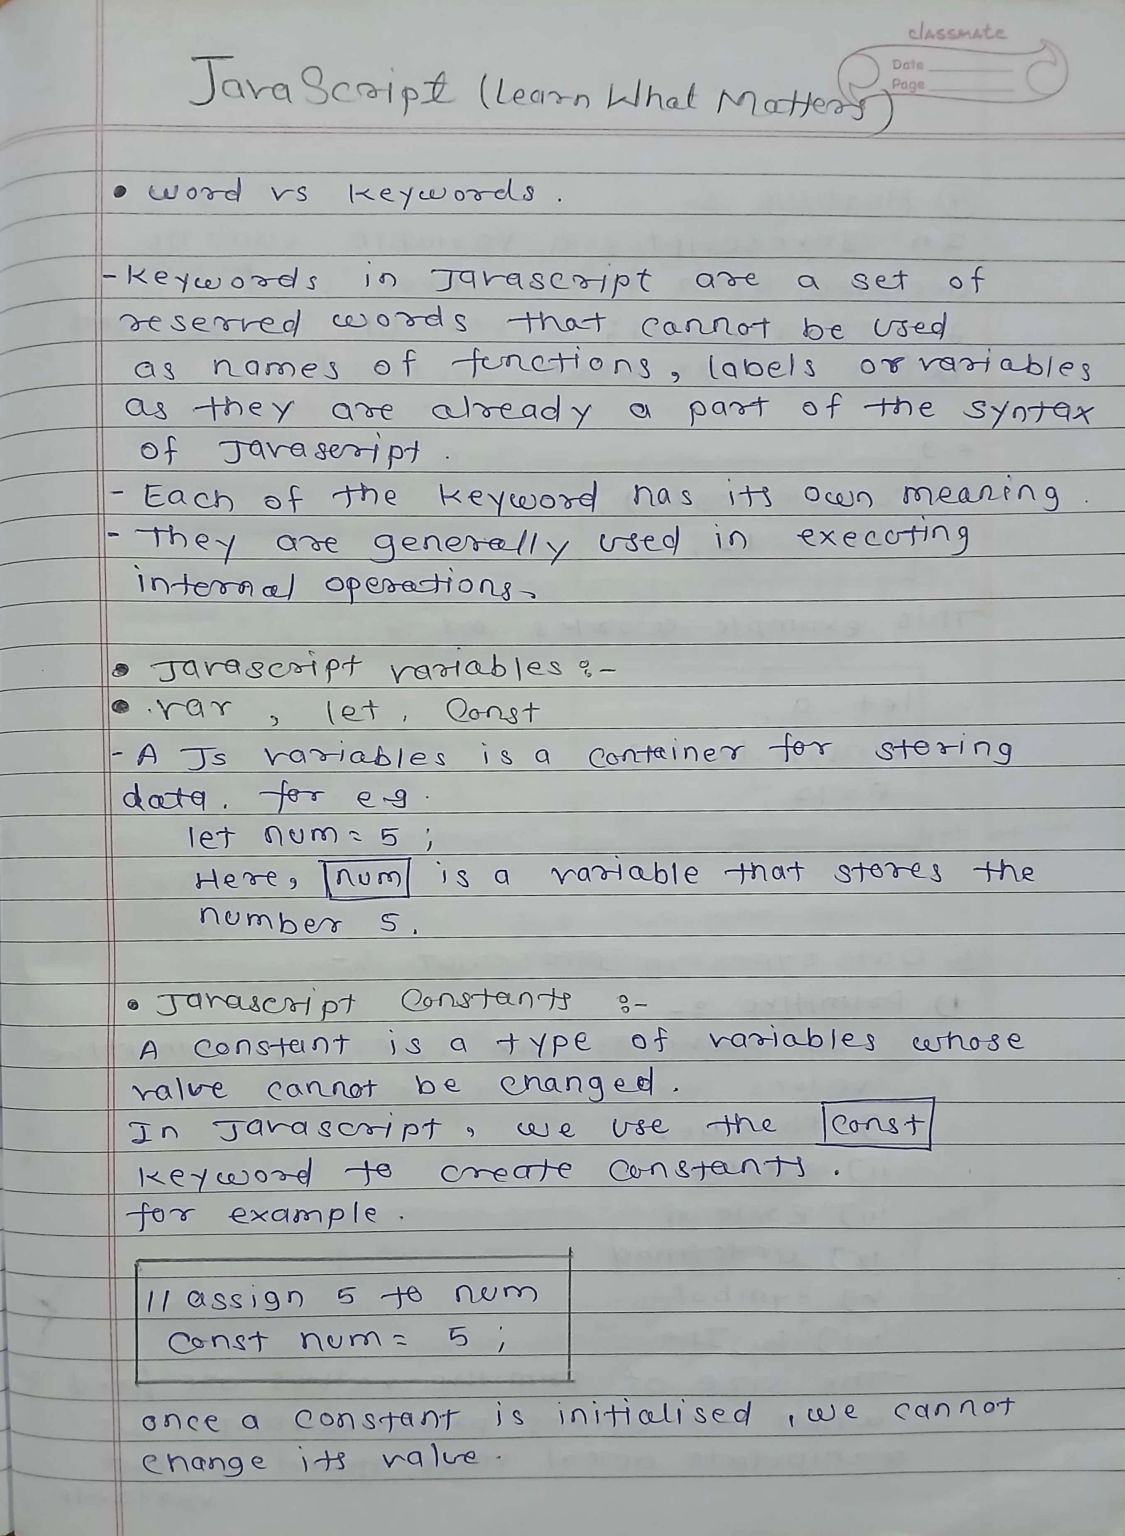 classmate
Date
Page
JavaScript (Learn What Matters)
• word vs keywords.
- keywords in Javascript are a set of
reserved words that cannot be used
as names of functions, labels or variables
as they are already a part of the syntax
of Javascript.
- Each of the keyword has its own meaning.
- They are generally used in executing
internal operations.
• Javascript variables :-
• var, let, Const
- A Js variables is a container for storing
data. for eg.
let num = 5 ;
Here, num is a variable that stores the
number 5.
• Javascript Constants :-
A constant is a type of variables whose
value cannot be changed.
In Javascript, we use the Const
keyword to create constants.
for example.
// assign 5 to num
Const num = 5 ;
once a constant is initialised, we cannot
change its value.